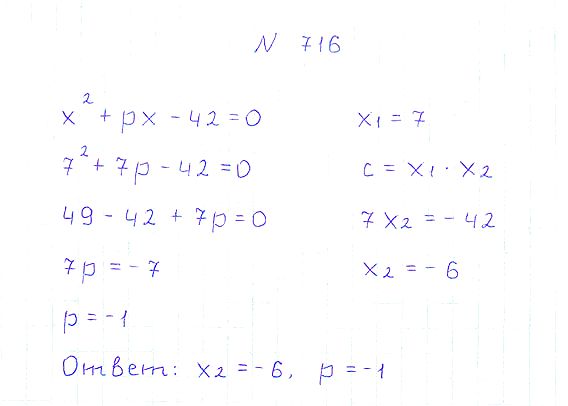 N 716
x² + px - 42 = 0
x₁ = 7
7² + 7p - 42 = 0
c = x₁ · x₂
49 - 42 + 7p = 0
7x₂ = - 42
7p = - 7
x₂ = - 6
p = - 1
Ответ: x₂ = - 6, p = - 1